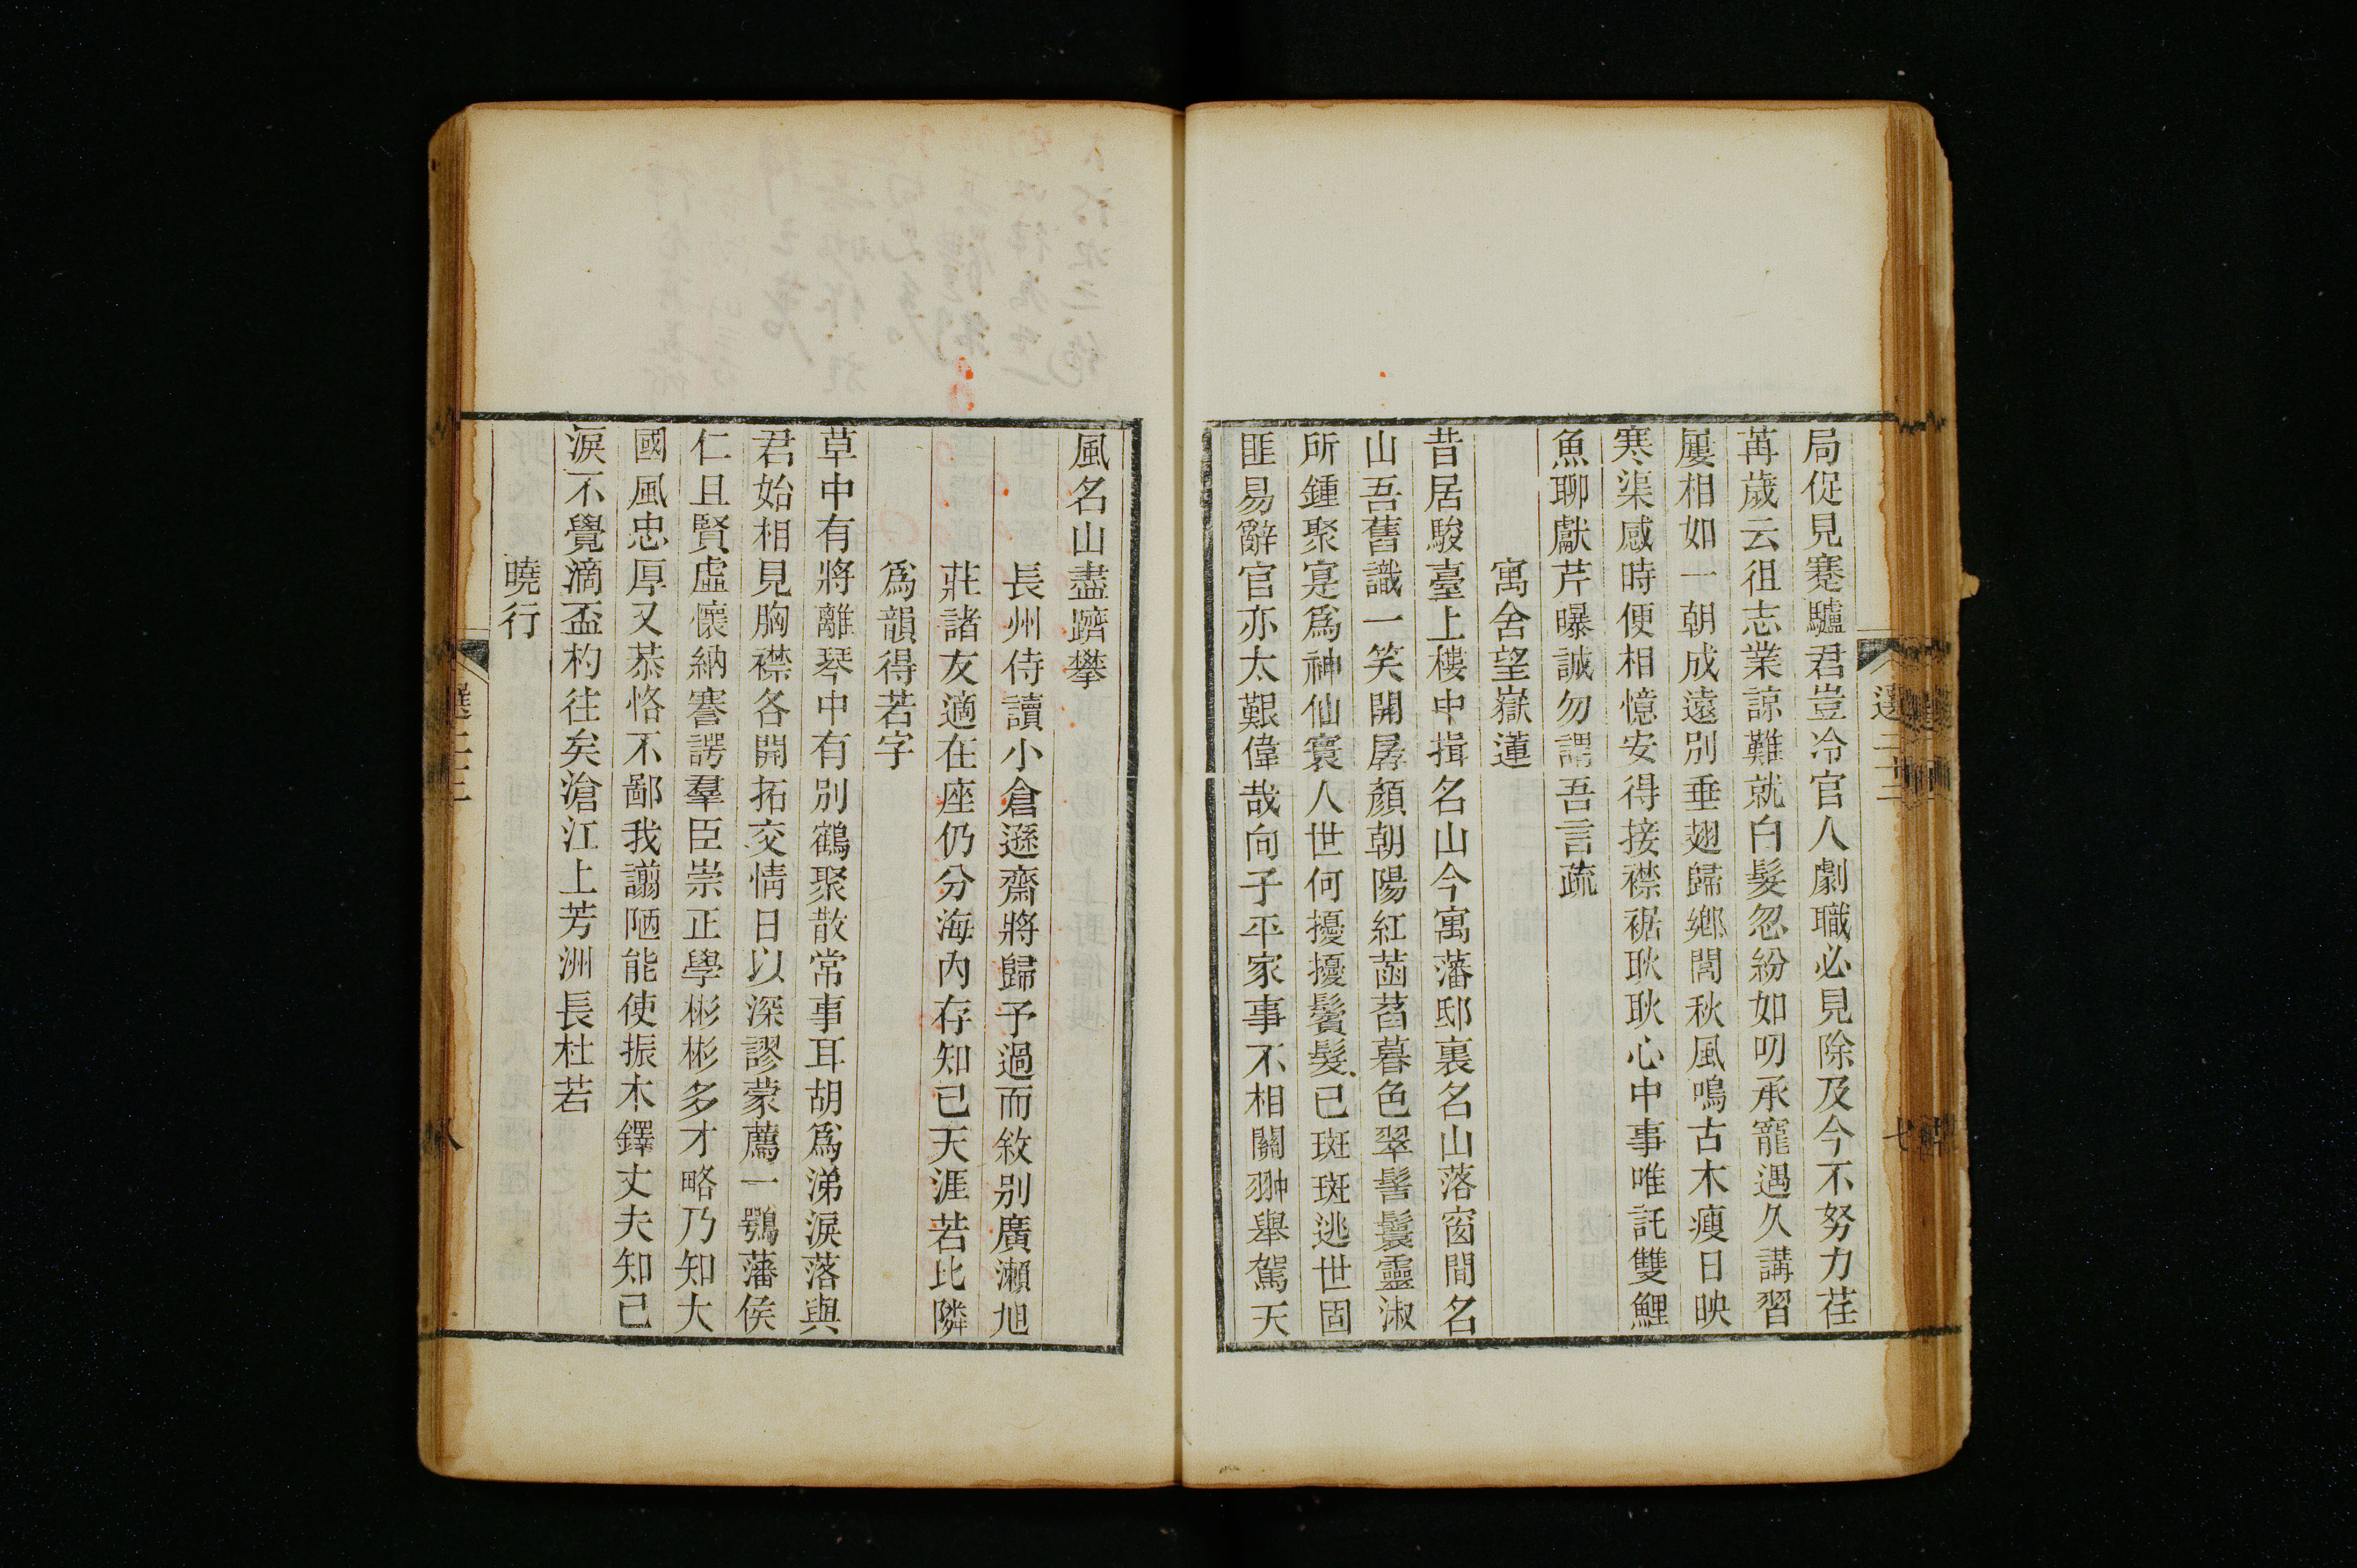 局促見蹇驢君豈冷官人劇職必見除及今不努力荏
苒歲云徂志業諒難就白髮忽紛如叨承寵遇久講習
屢相如一朝成遠別垂翅歸鄉閭秋風鳴古木瘦日映
寒渠感時便相憶安得接襟裾耿耿心中事唯託雙鯉
魚聊獻芹曝誠勿謂吾言疏
寓舍望嶽蓮
昔居駿臺上樓中揖名山今寓藩邸裏名山落窗間名
山吾舊識一笑開孱顏朝陽紅菡萏暮色翠髻鬟靈淑
所鍾聚寔爲神仙寰人世何擾擾鬢髮已斑斑逃世固
匪易辭官亦太艱偉哉向子平家事不相關翀舉駕天
風名山盡躋攀
長州侍讀小倉遜齋將歸予過而敘別廣瀨旭
莊諸友適在座仍分海內存知己天涯若比隣
爲韻得若字
草中有將離琴中有別鶴聚散常事耳胡爲涕淚落與
君始相見胸襟各開拓交情日以深謬蒙薦一鶚藩侯
仁且賢虛懷納謇諤羣臣崇正學彬彬多才略乃知大
國風忠厚又恭恪不鄙我譾陋能使振木鐸丈夫知己
淚不覺滴盃杓往矣滄江上芳洲長杜若
曉行
選二十三
七
八